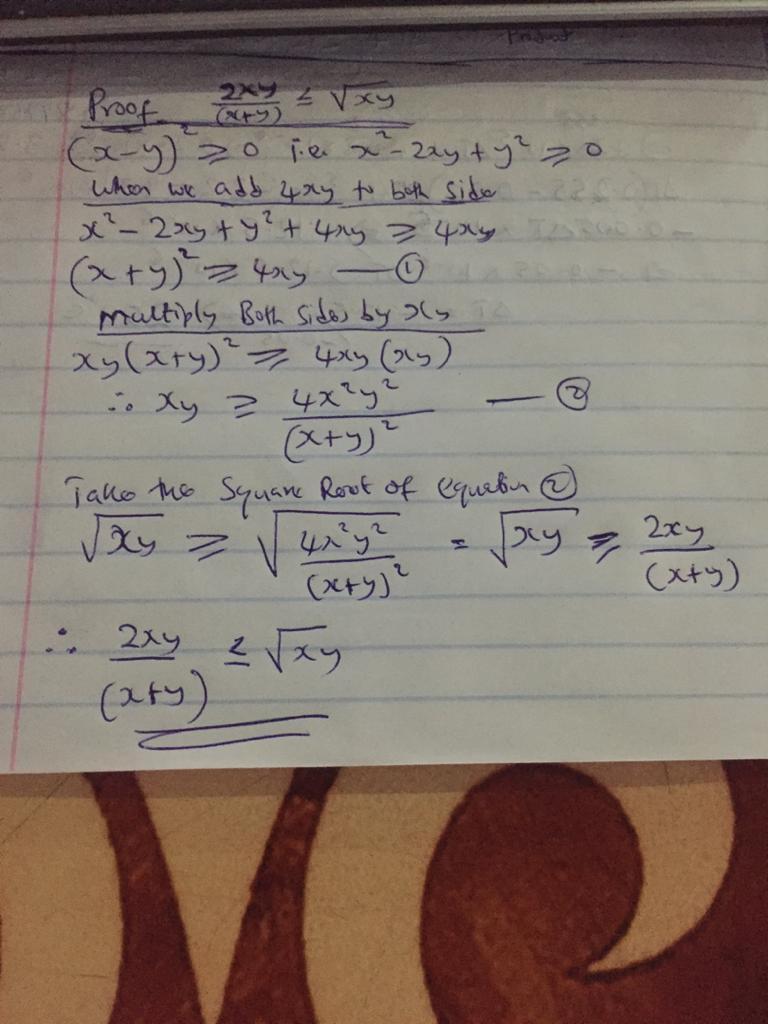 Product
Proof 2xy/(x+y) ≤ √xy
(x-y)² ≥ 0 i.e x² - 2xy + y² ≥ 0
When we add 4xy to both side
x² - 2xy + y² + 4xy ≥ 4xy
(x+y)² ≥ 4xy — ①
Multiply Both Sides by xy
xy(x+y)² ≥ 4xy(xy)
∴ xy ≥ 4x²y²/(x+y)² — ②
Take the Square Root of equation ②
√xy ≥ √(4x²y²/(x+y)²) = √xy ≥ 2xy/(x+y)
∴ 2xy/(x+y) ≤ √xy